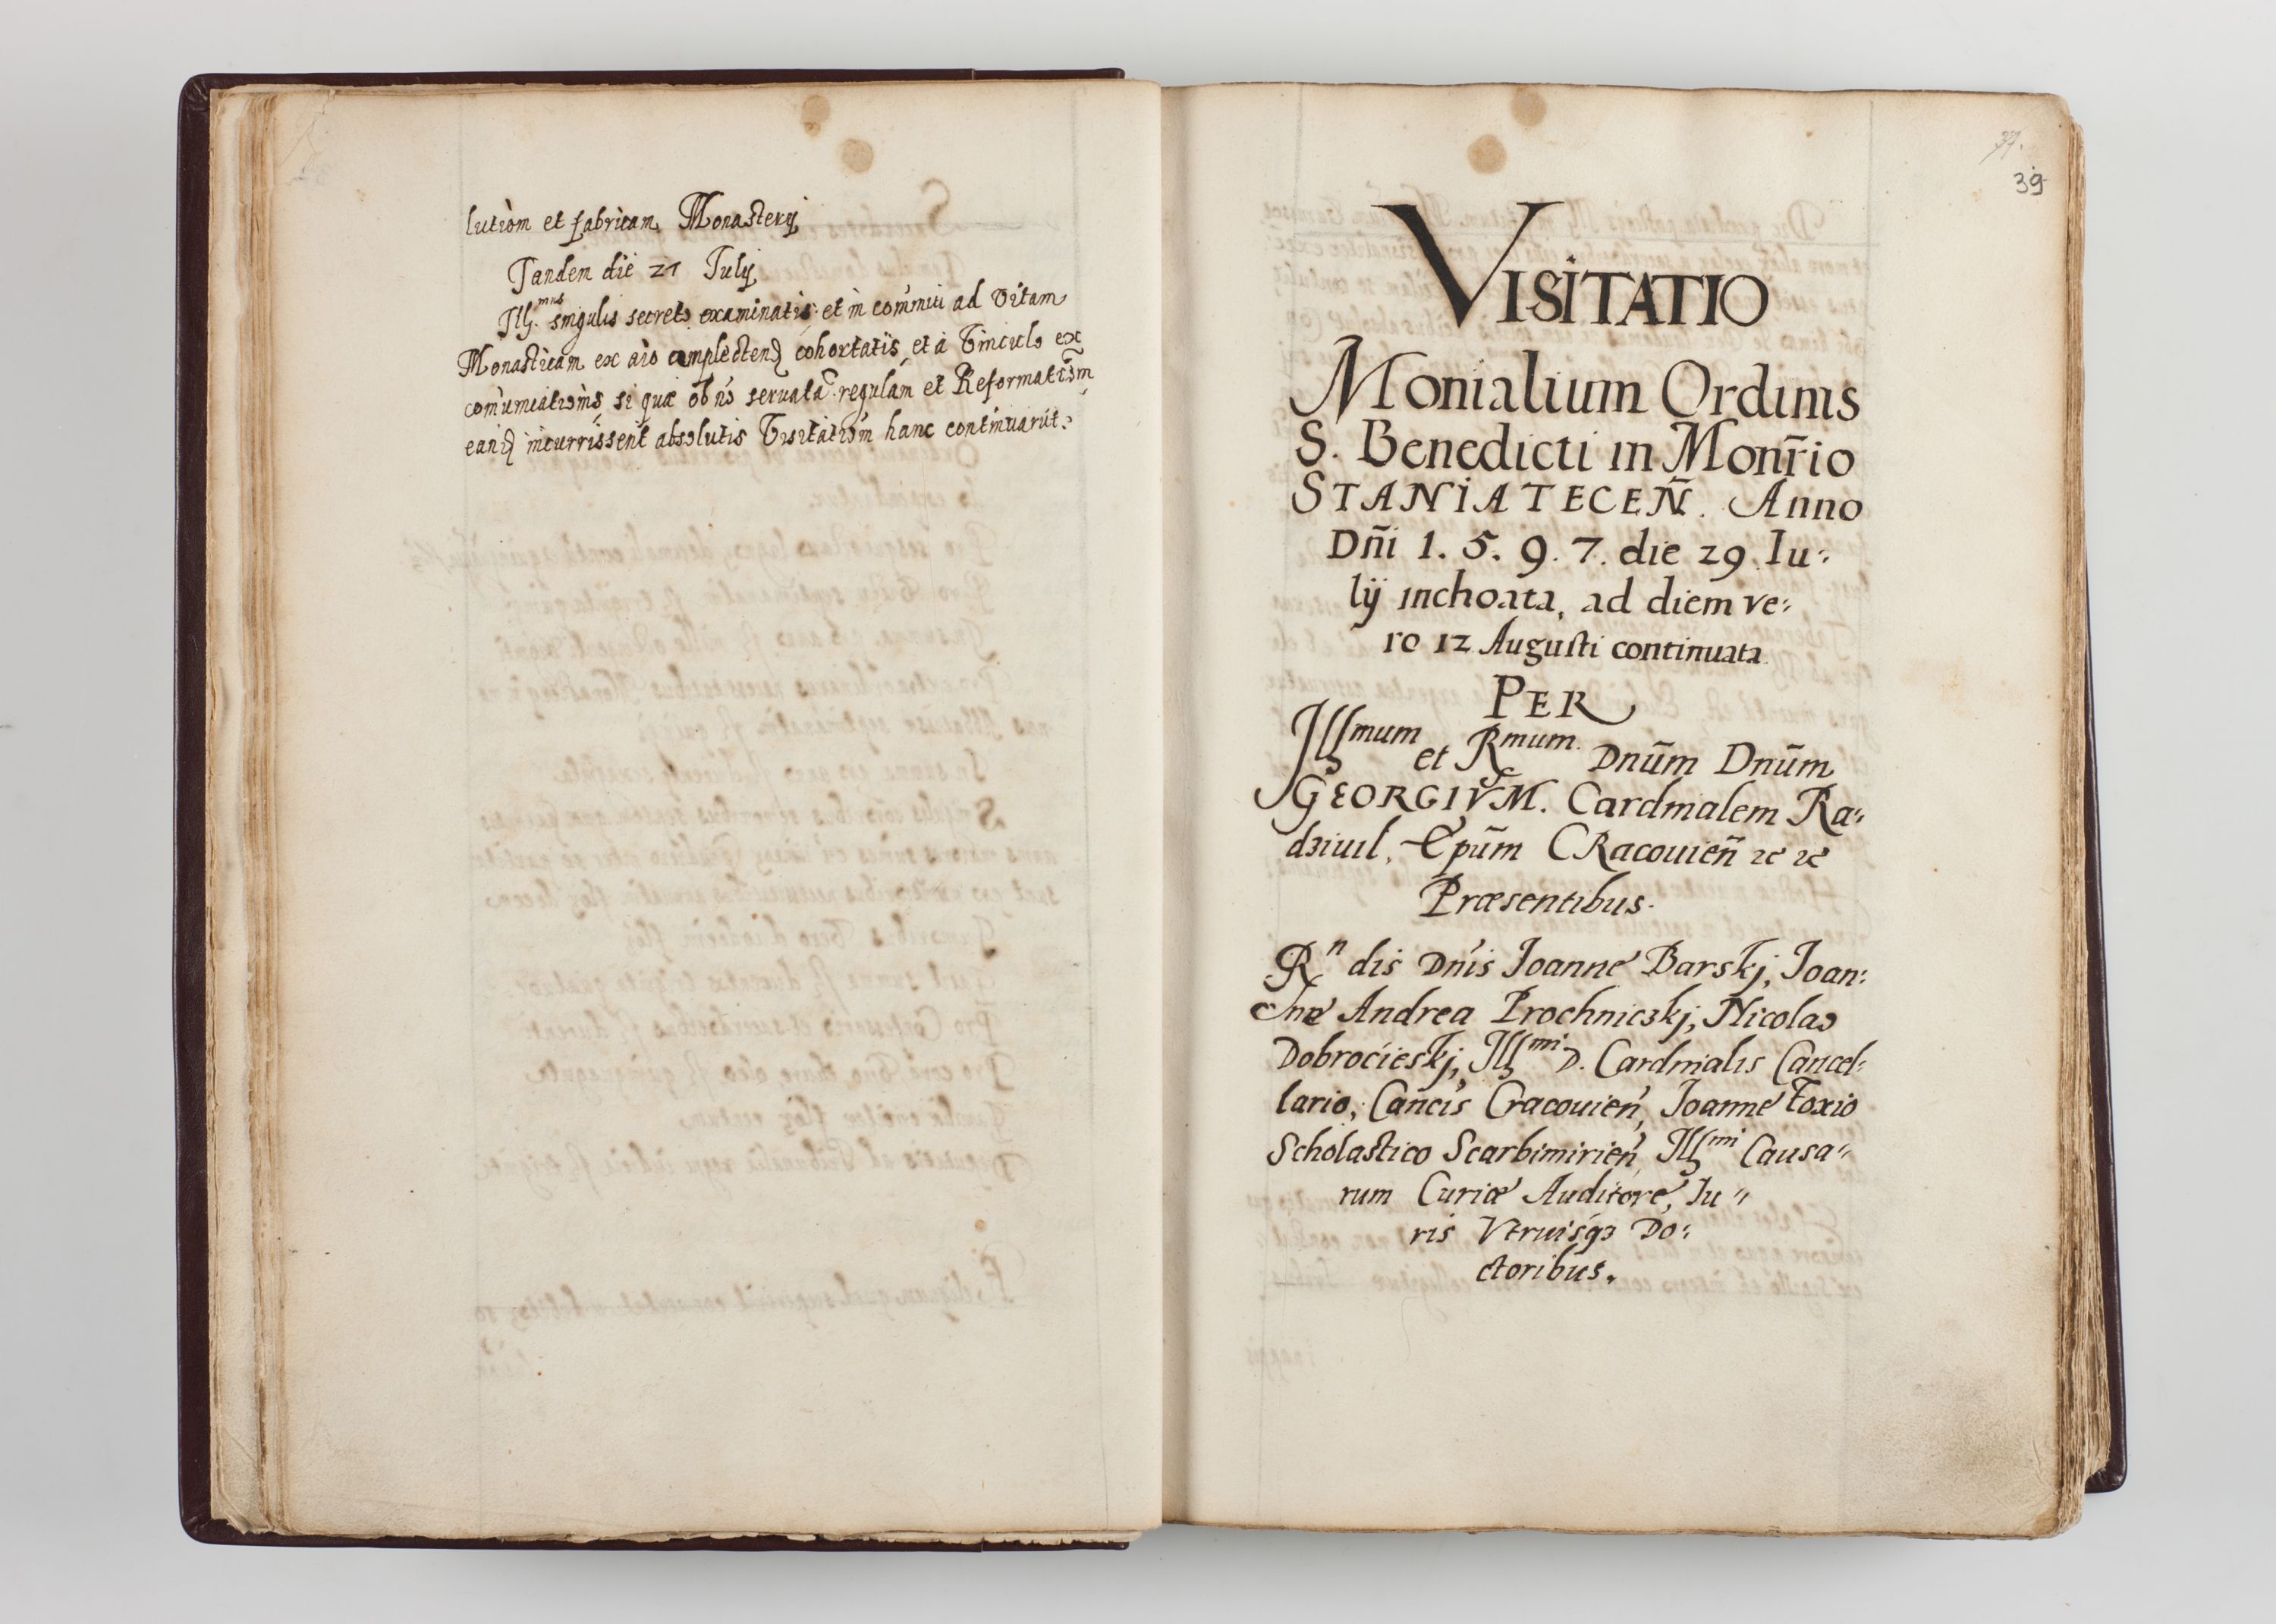 lutiom et fabricam Monasterij
Tandem die 21 Julij
Ill.mus singulis secreto examinatis et in com̄uni ad Vitam
Monasticam ex aīo complectend cohortatis, et a Vinculo ex
com̄unicatiōnis, si quæ ob nō seruatā regulam et Reformatiōm
eand incurrissent absolutis Visitatiōm hanc continuarūt.
37.
39
VISITATIO
Monialium Ordinis
S. Benedicti in Monr̄io
STANIATECEÑ. Anno
Dñi 1. 5. 9. 7. die 29 Iu-
lij inchoata, ad diem ve-
ro 12 Augusti continuata
PER
Illmum et Rmum Dnūm Dnūm
GEORGIVM. Cardinalem Ra-
dziuil, Epūm CRacouieñ &c &c
Præsentibus.
Rn dis Dnis Joanne Barskj, Joan-
ne Andrea Prochniczkj, Nicolao
Dobrocieskj, Illmi D. Cardinalis Cancel-
lario, Cañcis Cracouień, Joanne Foxio
Scholastico Scarbimirień, Illmi Causa-
rum Curiæ Auditore, Iu-
ris Vtriusq3 Do-
ctoribus.